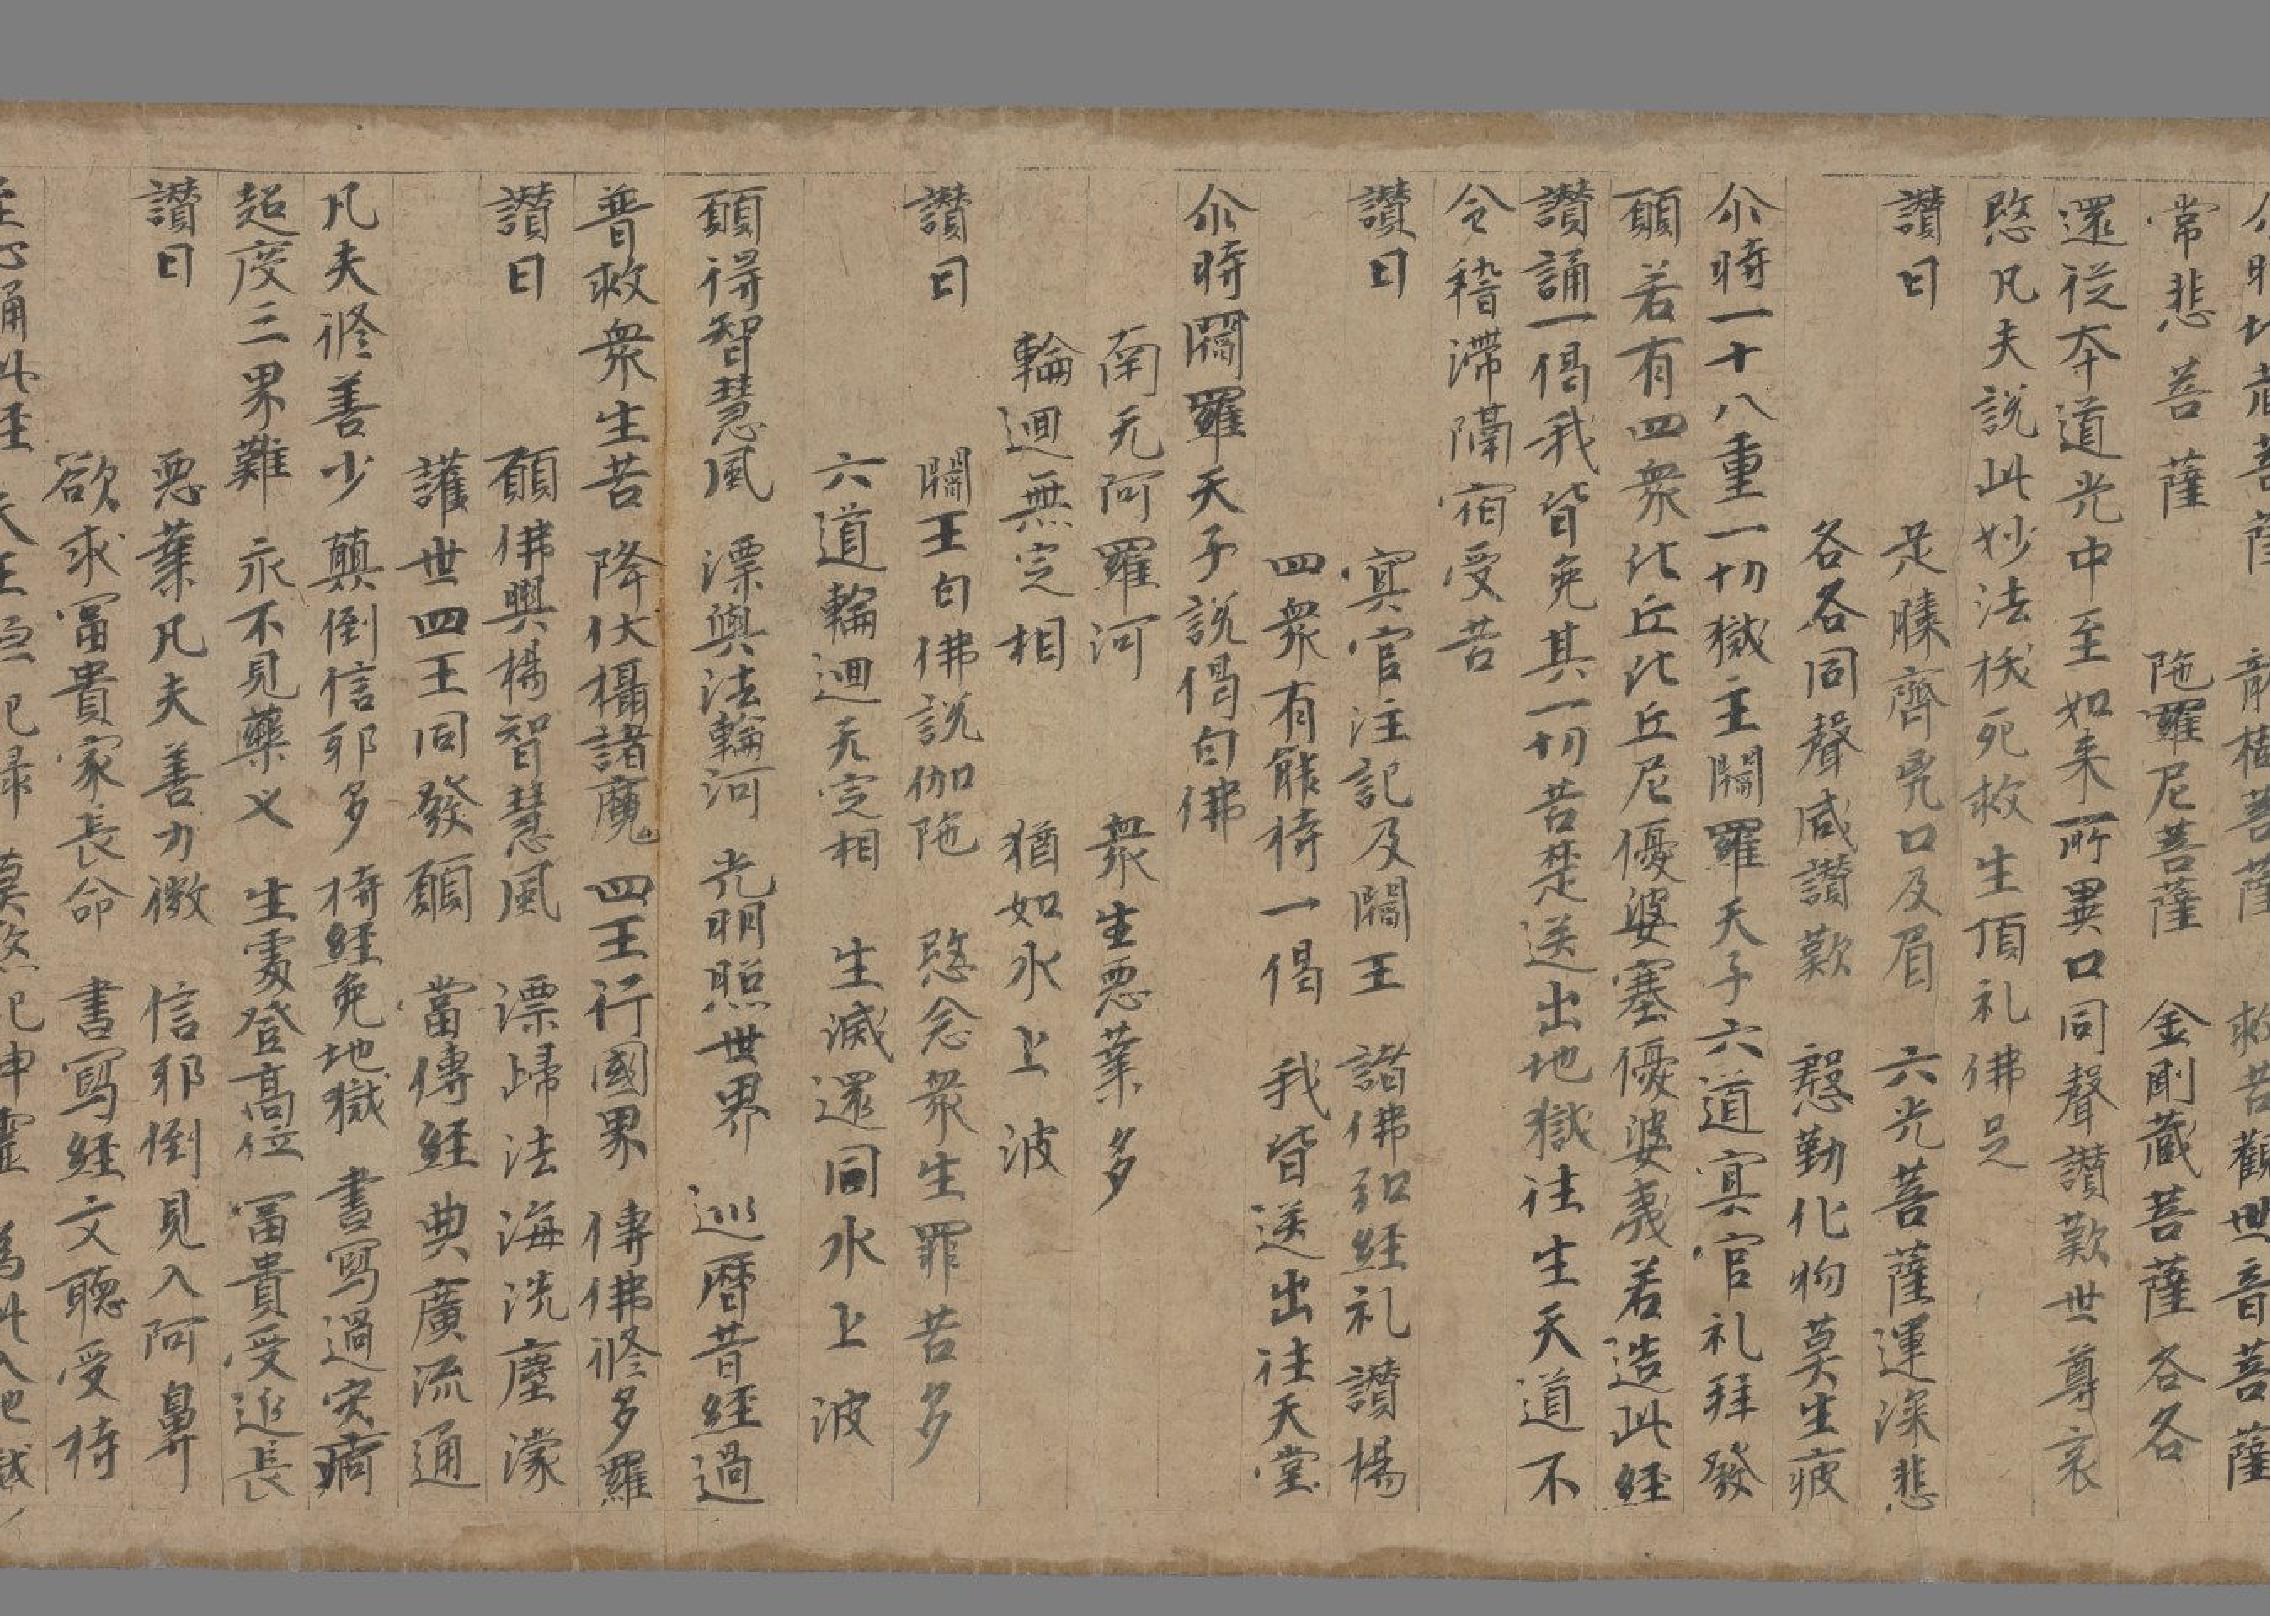 尒時地藏菩薩 龍樹菩薩 救苦觀世音菩薩
常悲菩薩 陁羅尼菩薩 金剛藏菩薩各各
還從夲道光中至如来所異口同聲讃歎世尊哀
愍凡夫說此妙法拔死救生頂礼佛足
讃曰
足膝齊兇口及眉 六光菩薩運深悲
各各同聲咸讃歎 慇勤化物莫生疲
尒時一十八重一切獄主閻羅天子六道冥官礼拜發
願若有四衆比丘比丘尼優婆塞優婆夷若造此經
讃誦一偈我皆免其一切苦楚送出地獄往生天道不
令稽滯隔宿受苦
讃曰
冥官注記及閻王 諸佛弘經礼讃楊
四衆有能持一偈 我皆送出往天堂
尒時閻羅天子說偈白佛
南无阿羅河 衆生悪業多
輪迴無㝎相 猶如水上波
讃曰
閻王白佛說伽陁 愍念衆生罪苦多
六道輪迴无㝎相 生滅還同水上波
願得智慧風 漂與法輪河 光明照世界 巡曆昔經過
普救衆生苦 降伏攝諸魔 四王行國界 傳佛修多羅
讃曰
願佛興楊智慧風 漂歸法海洗塵濛
護世四王同發願 當傳經典廣流通
凡夫修善少 顛倒信邪多 持經免地獄 書寫過灾痾
超度三界難 永不見藥叉 生處登高位 冨貴受延長
讃曰
悪業凡夫善力微 信邪倒見入阿鼻
欲求冨貴家長命 書寫經文聽受持
至心誦此經 天王恒記錄 莫煞祀神靈 爲此入地獄